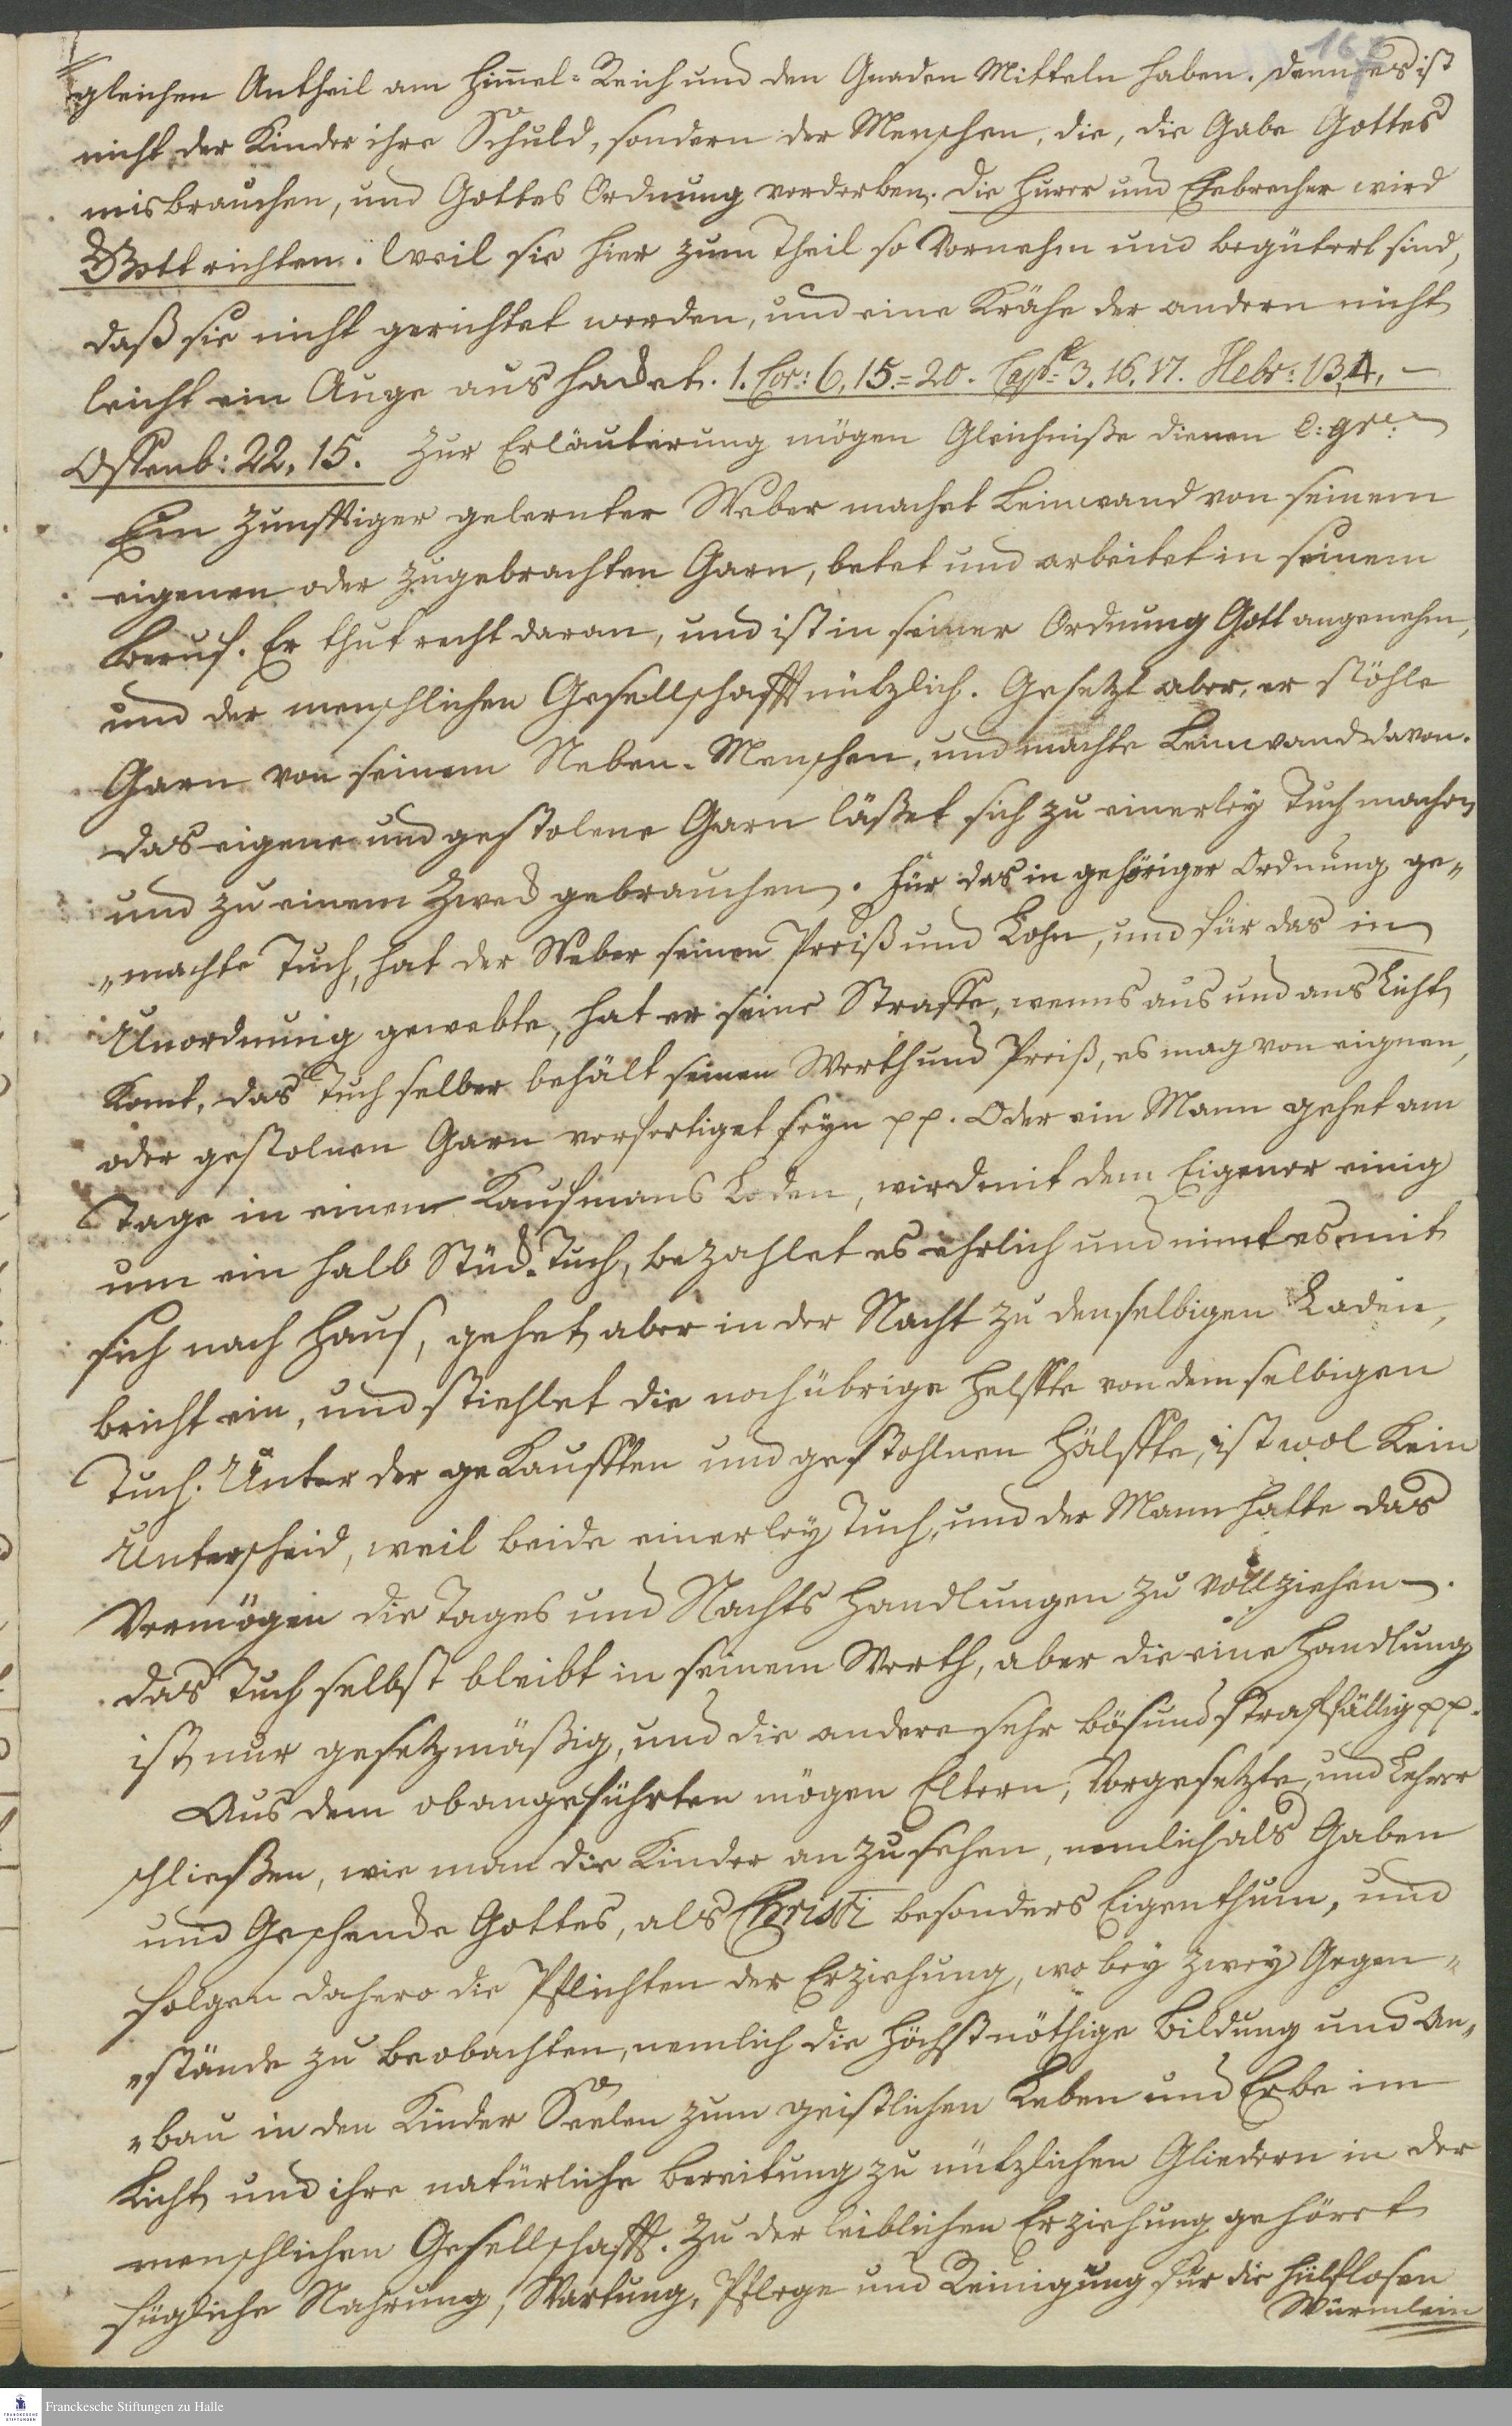 167
gleichen Antheil am Him̄el-Reich und den Gnaden Mitteln haben. Denn es ist
nicht der Kinder ihre Schuld, sondern der Menschen, die, die Gabe Gottes
misbrauchen, und Gottes Ordnung verderben. Die Hurer und Ehebrecher wird
Gott richten. Weil sie hier zum Theil so Vornehm und begütert sind,
daß sie nicht gerichtet werden, und eine Krähe der andern nicht
leicht ein Auge aushacket. 1. Cor: 6, 15.=20. Cap: 3. 16. 17. Hebr: 13,4. –
Offenb: 22, 15. Zur Erläuterung mögen Gleichniße dienen e: gr:
Ein Zunfftiger gelernter Weber machet Leinwand von seinem
eigenen oder zugebrachten Garn, betet und arbeitet in seinem
Beruf. Er thut recht daran, und ist in seiner Ordnung Gott angenehm,
und der menschlichen Gesellschafft nützlich. Gesetzt aber, er stöhle
Garn von seinem Neben-Menschen, und machte Leinwand davon.
Das eigene und gestolene Garn läßet sich zu einerley Tuch machen
und zu einem Zweck gebrauchen. Für das in gehöriger Ordnung ge„
„machte Tuch, hat der Weber seinen Preiß und Lohn, und für das in
Unordnung gewebte, hat er seine Straffe, wenns aus und ans Licht
komt. Das Tuch selber behält seinen Werth und Preiß, es mag von eignen,
oder gestolnen Garn verfertiget seyn pp. Oder ein Mann gehet am
Tage in einem Kaufmans Laden, wird mit dem Eigener einig
um ein halb Stück Tuch, bezahlet es ehrlich und nimt es mit
sich nach Haus, gehet aber in der Nacht zu denselbigen Laden,
bricht ein, und stiehlet die noch übrige Helffte von demselbigen
Tuch. Unter der gekaufften und gestohlnen Hälffte, ist wol kein
Unterscheid, weil beide einerley Tuch, und der Mann hatte das
Vermögen die Tages und Nachts Handlungen zu vollziehen.
Das Tuch selbst bleibt in seinem Werth, aber die eine Handlung
ist nur gesetzmäßig, und die andere sehr bös und straffällig pp.
Aus dem obangeführten mögen Eltern, Vorgesetzte, und Lehrer
schließen, wie man die Kinder anzusehen, nemlich als Gaben
und Geschencke Gottes, als Christi besonders Eigenthum, und
folgen dahero die Pflichten der Erziehung, wobey zwey Gegen„
„stände zu beobachten, nemlich die höchstnöthige Bildung und An„
„bau in den Kinder Seelen zum geistlichen Leben und Erbe im
Licht und ihre natürliche Bereitung zu nützlichen Gliedern in der
menschlichen Gesellschafft. Zu der leiblichen Erziehung gehöret
fügliche Nahrung, Wartung, Pflege und Reinigung für die hülflosen
Würmlein
Franckesche Stiftungen zu Halle